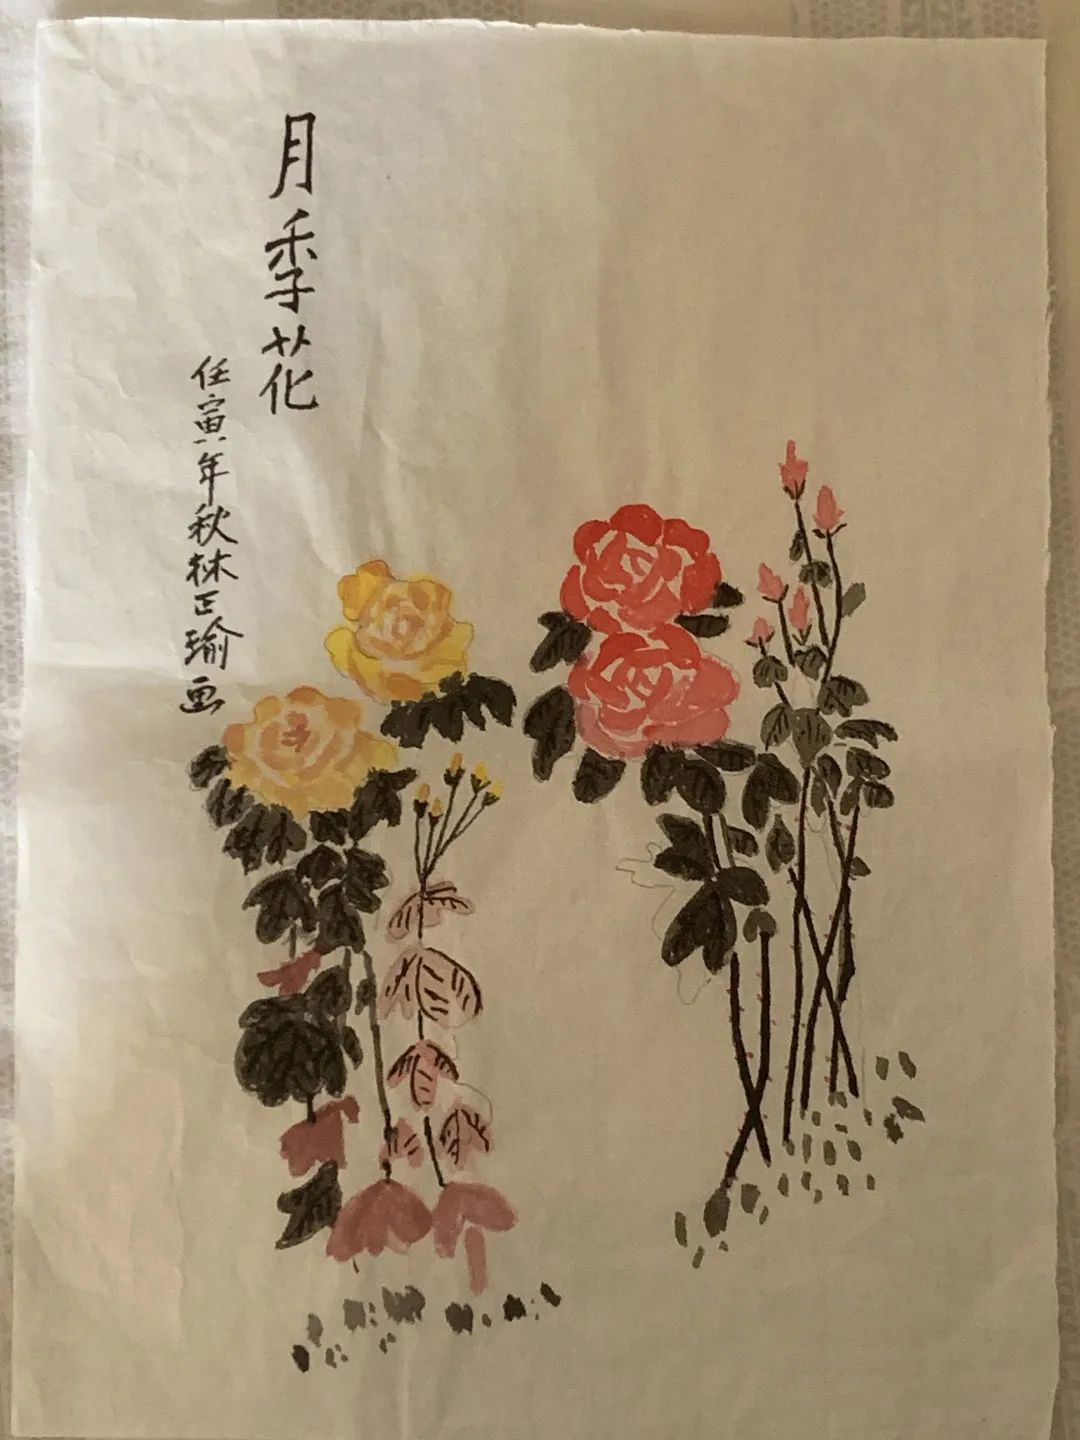 月季花
任寅年秋林正瑜画